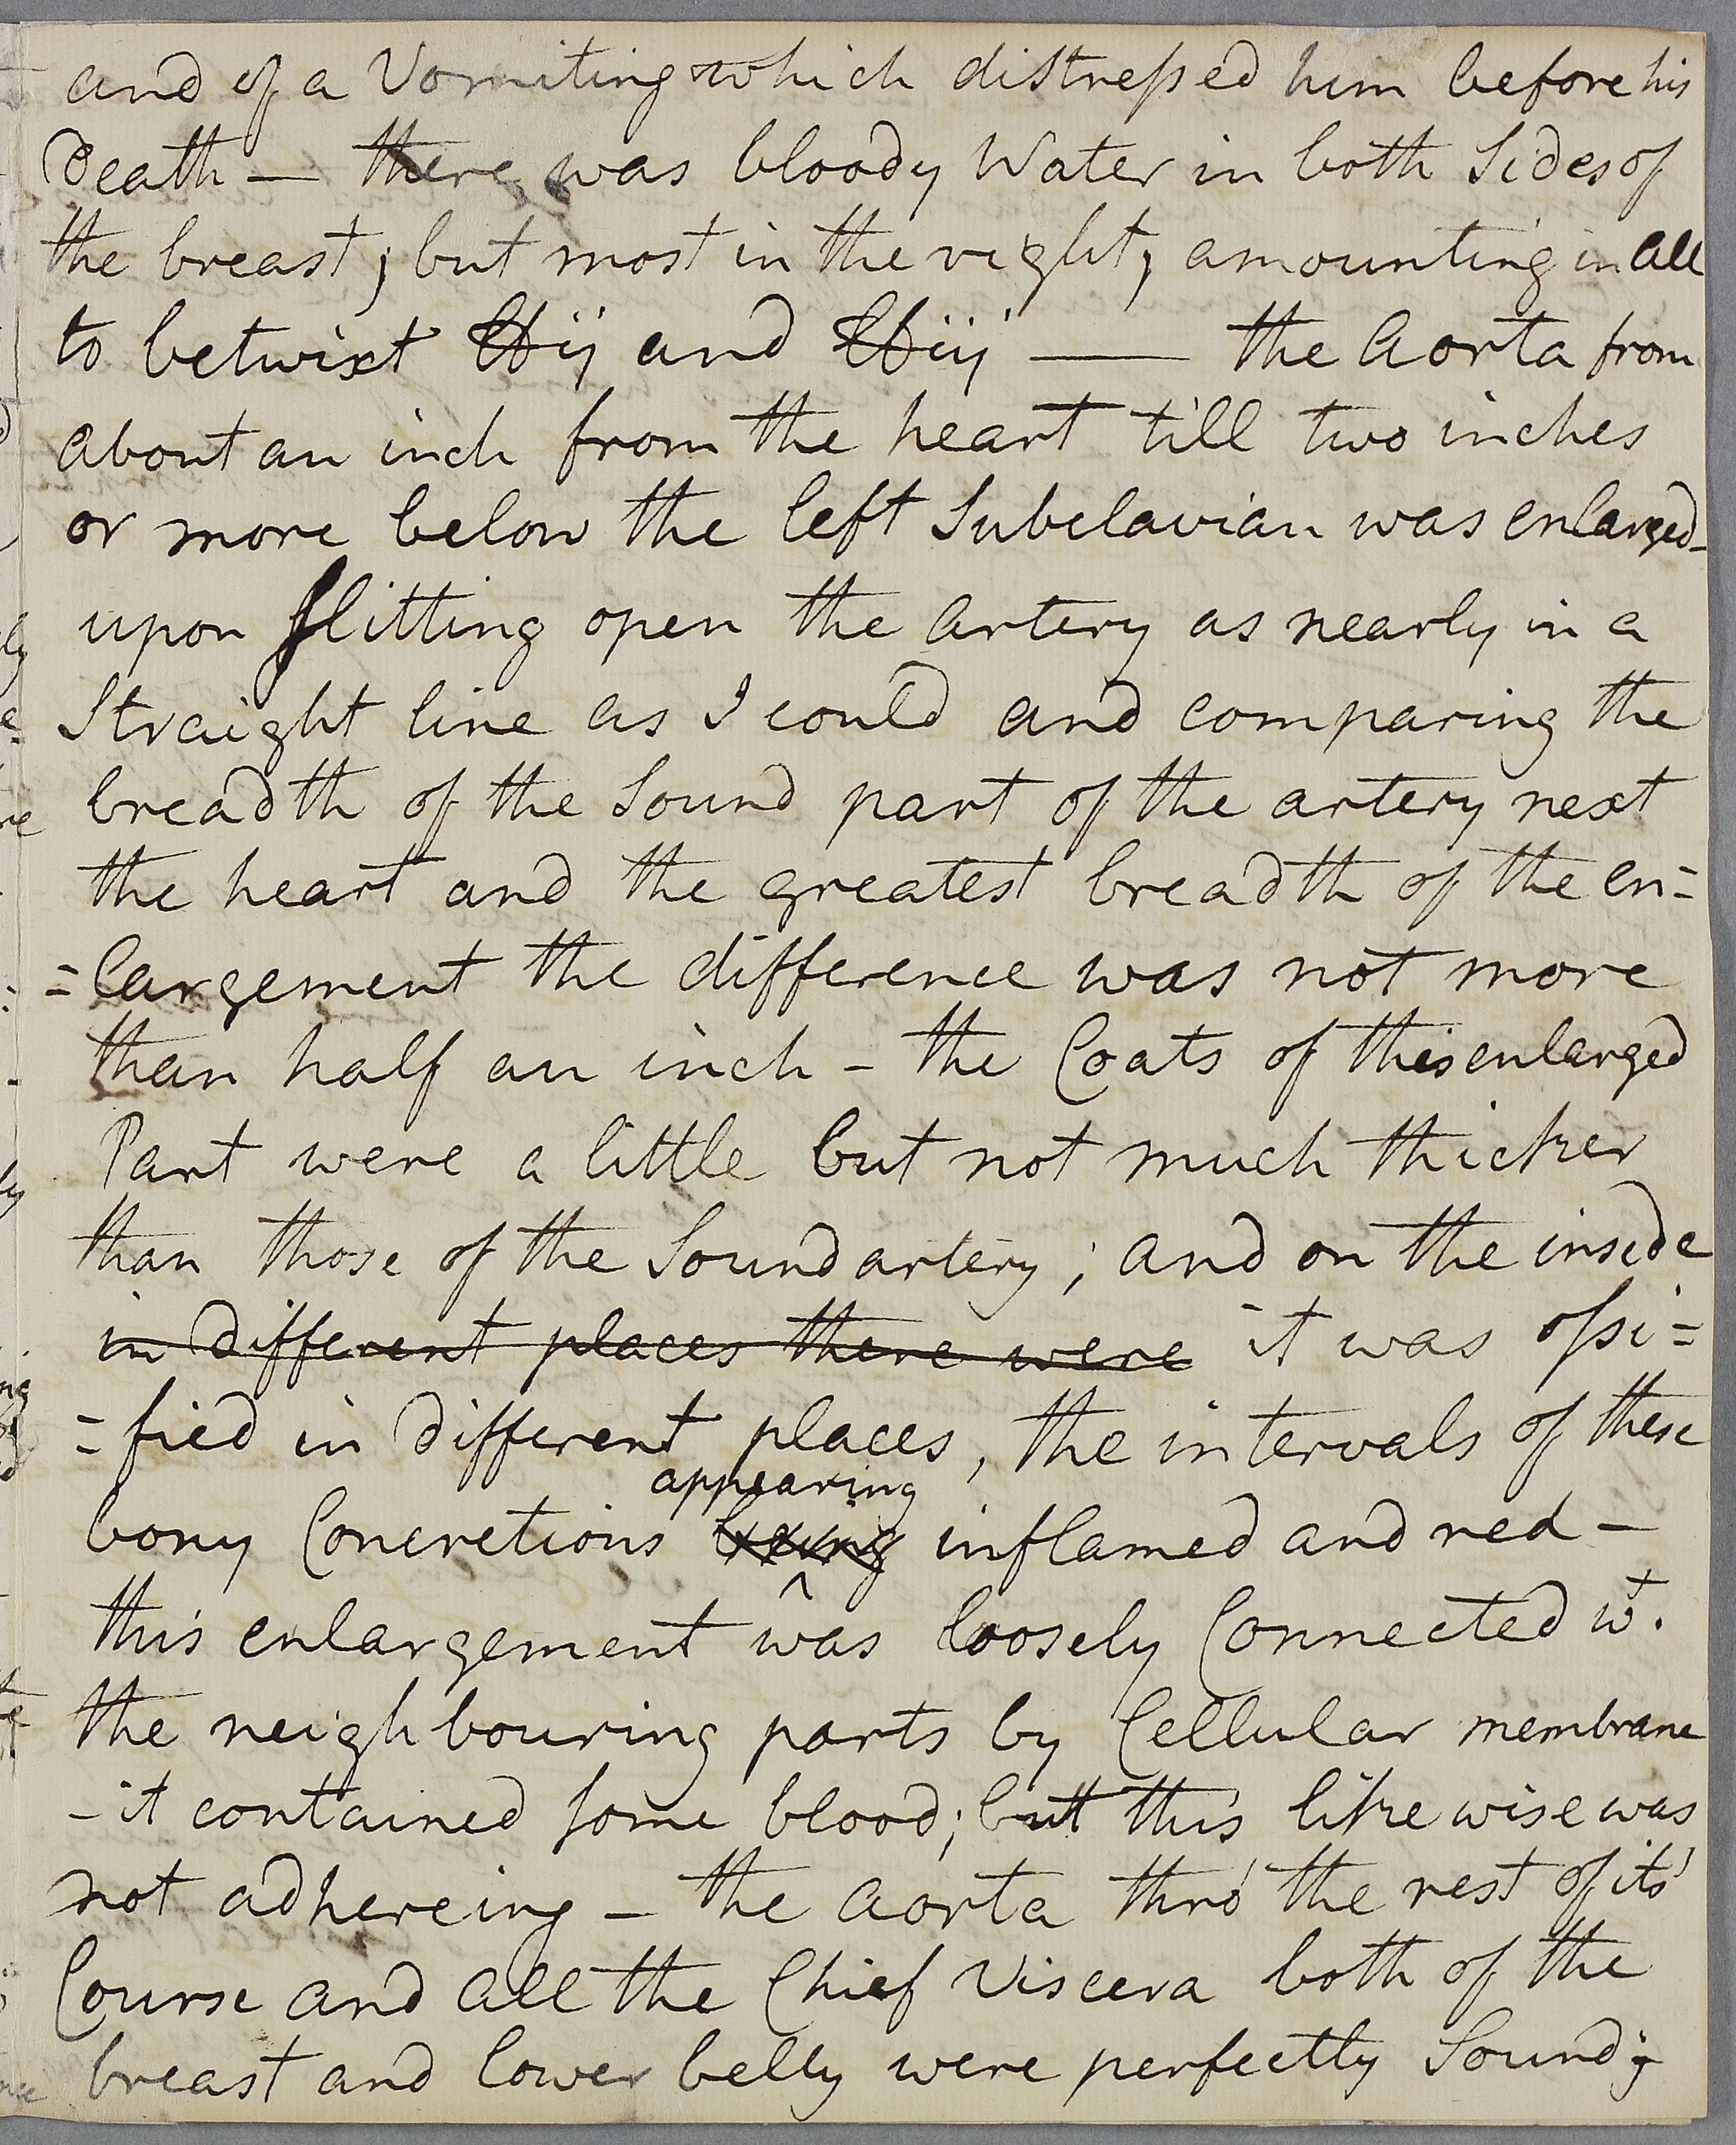 and of a Vomiting which distreſsed him before his
Death — there was bloody Water in both Sides of
the breast; but most in the right, amounting in all
to betwixt ℔ij and ℔iij — the Aorta from
about an inch from the heart till two inches
or more below the left Subclavian was enlarged –
upon ſlitting open the artery as nearly in a
Straight line as I could and comparing the
breadth of the Sound part of the artery next
the heart and the greatest breadth of the en=
=largement the difference was not more
than half an inch – the Coats of this enlarged
Part were a little but not much thicker
than those of the Sound artery; and on the inside
in different places there were it was oſsi=
=fied in different places, the intervals of these
appearing
bony Concretions being inflamed and red –
this enlargement was loosely Connected wt.
the neighbouring parts by Cellular membrane
– it contained some blood; but this likewise was
not adhereing – the aorta thro' the rest of its'
Course and all the Chief Viscera both of the
breast and lower belly were perfectly Sound;